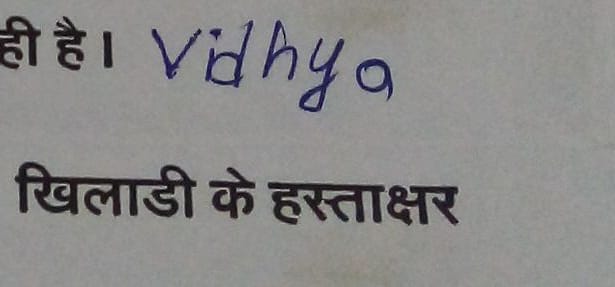 ही है। Vidhya
खिलाडी के हस्ताक्षर